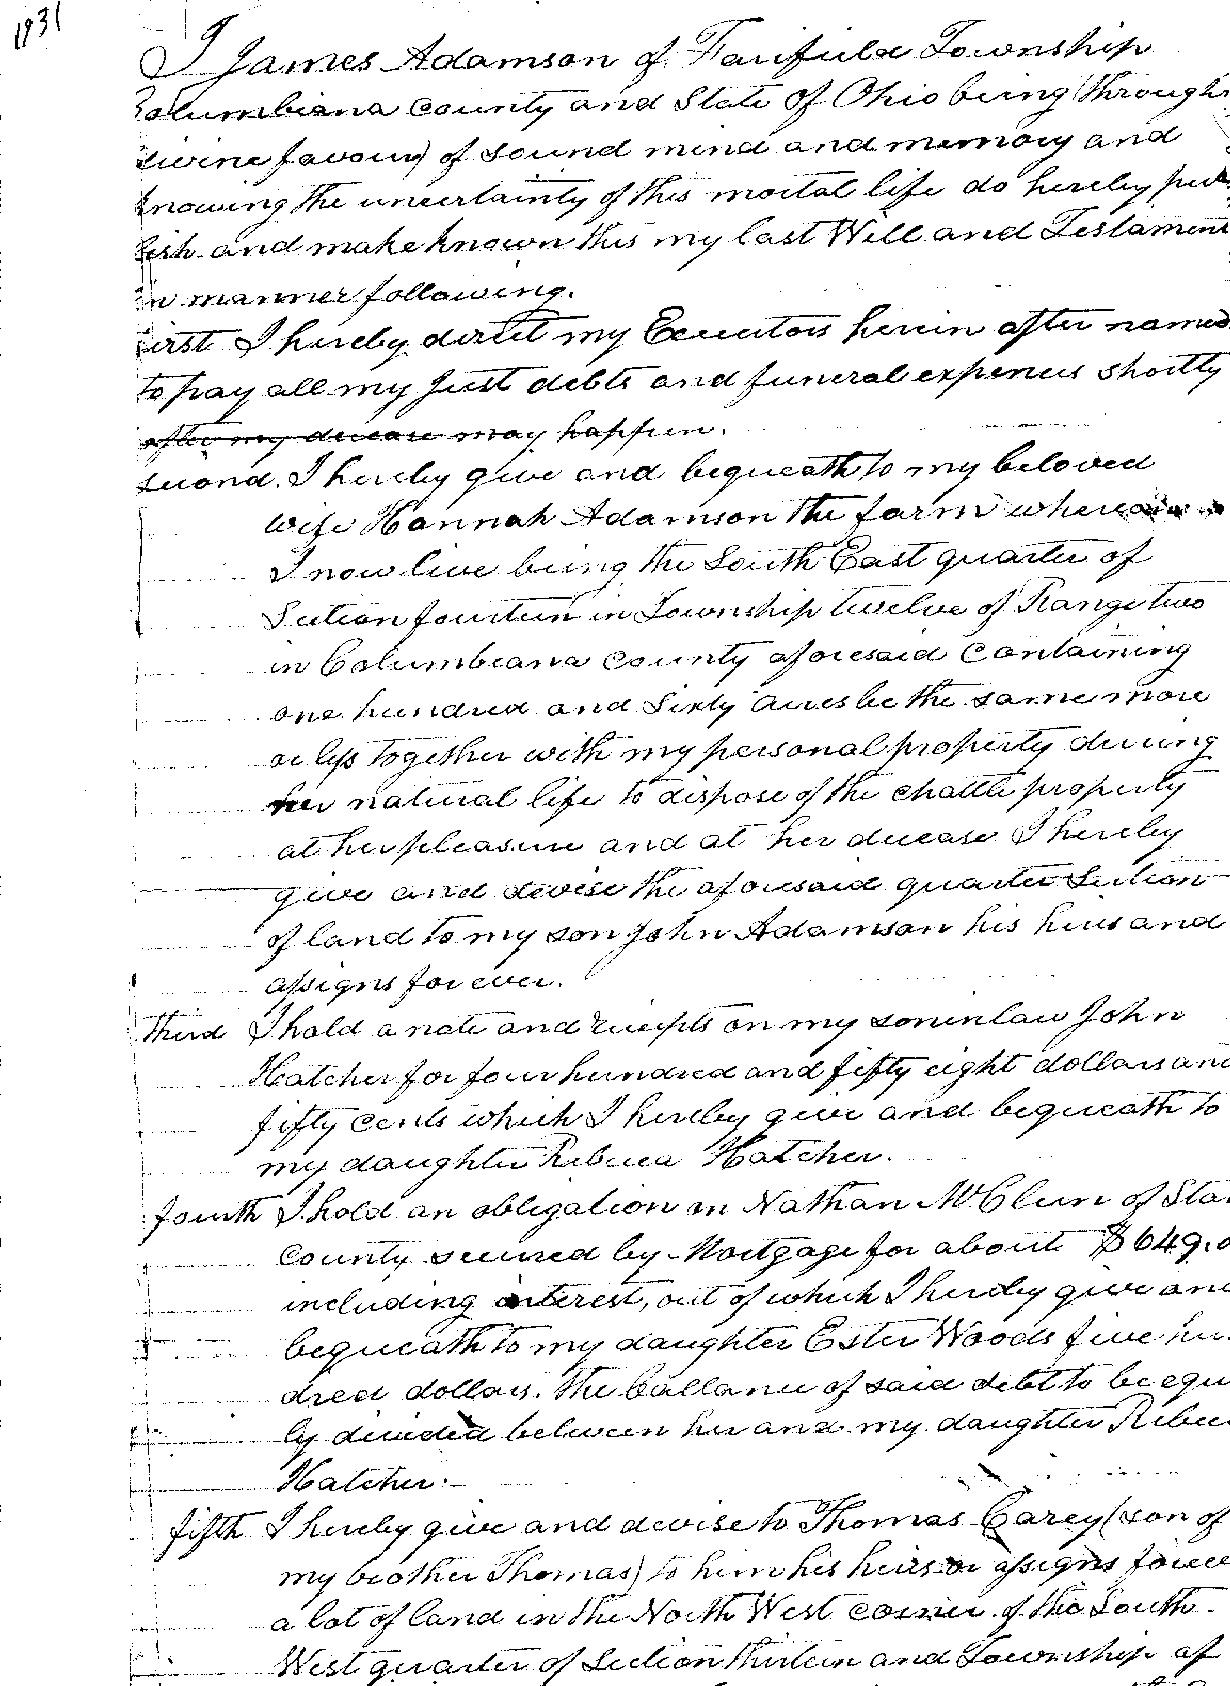 1931
I James Adamson of Fairfield Township
Columbiana County and State of Ohio being (through
divine favour) of sound mind and memory and
knowing the uncertainty of this mortal life do hereby pub
lish and make known this my last Will and Testament
in manner following.
First I hereby direct my Executors herein after named
to pay all my just debts and funeral expenses shortly
after my decease may happen.
second. I hereby give and bequeath to my beloved
wife Hannah Adamson the farm whereon
I now live being the South East quarter of
Section fourteen in Township twelve of Range two
in Columbiana County aforesaid Containing
one hundred and Sixty Acres be the same more
or less together with my personal property during
her natural life to dispose of the chattle property
at her pleasure and at her decease I hereby
give and devise the aforesaid quarter Section
of land to my son John Adamson his heirs and
assigns for ever.
third I hold a note and receipts on my soninlaw John
Hatcher for four hundred and fifty eight dollars and
fifty cents which I hereby give and bequeath to
my daughter Rebecca Hatcher.
fourth I hold an obligation on Nathan McClun of Sta
County secured by Mortgage for about $649.0
including interest, out of which I hereby give and
bequeath to my daughter Ester Woods five hu
dred dollars. the ballance of said debt to be equ
ly divided between her and my daughter Rebec
Hatcher.
fifth I hereby give and devise to Thomas Carey (son of
my brother Thomas) to him his heirs or assigns forev
a lot of land in the North West corner of the South
West quarter of Section thirteen and Township of